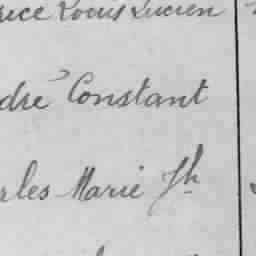 rice Louis Lucien
dré Constant
rles Marie Jh